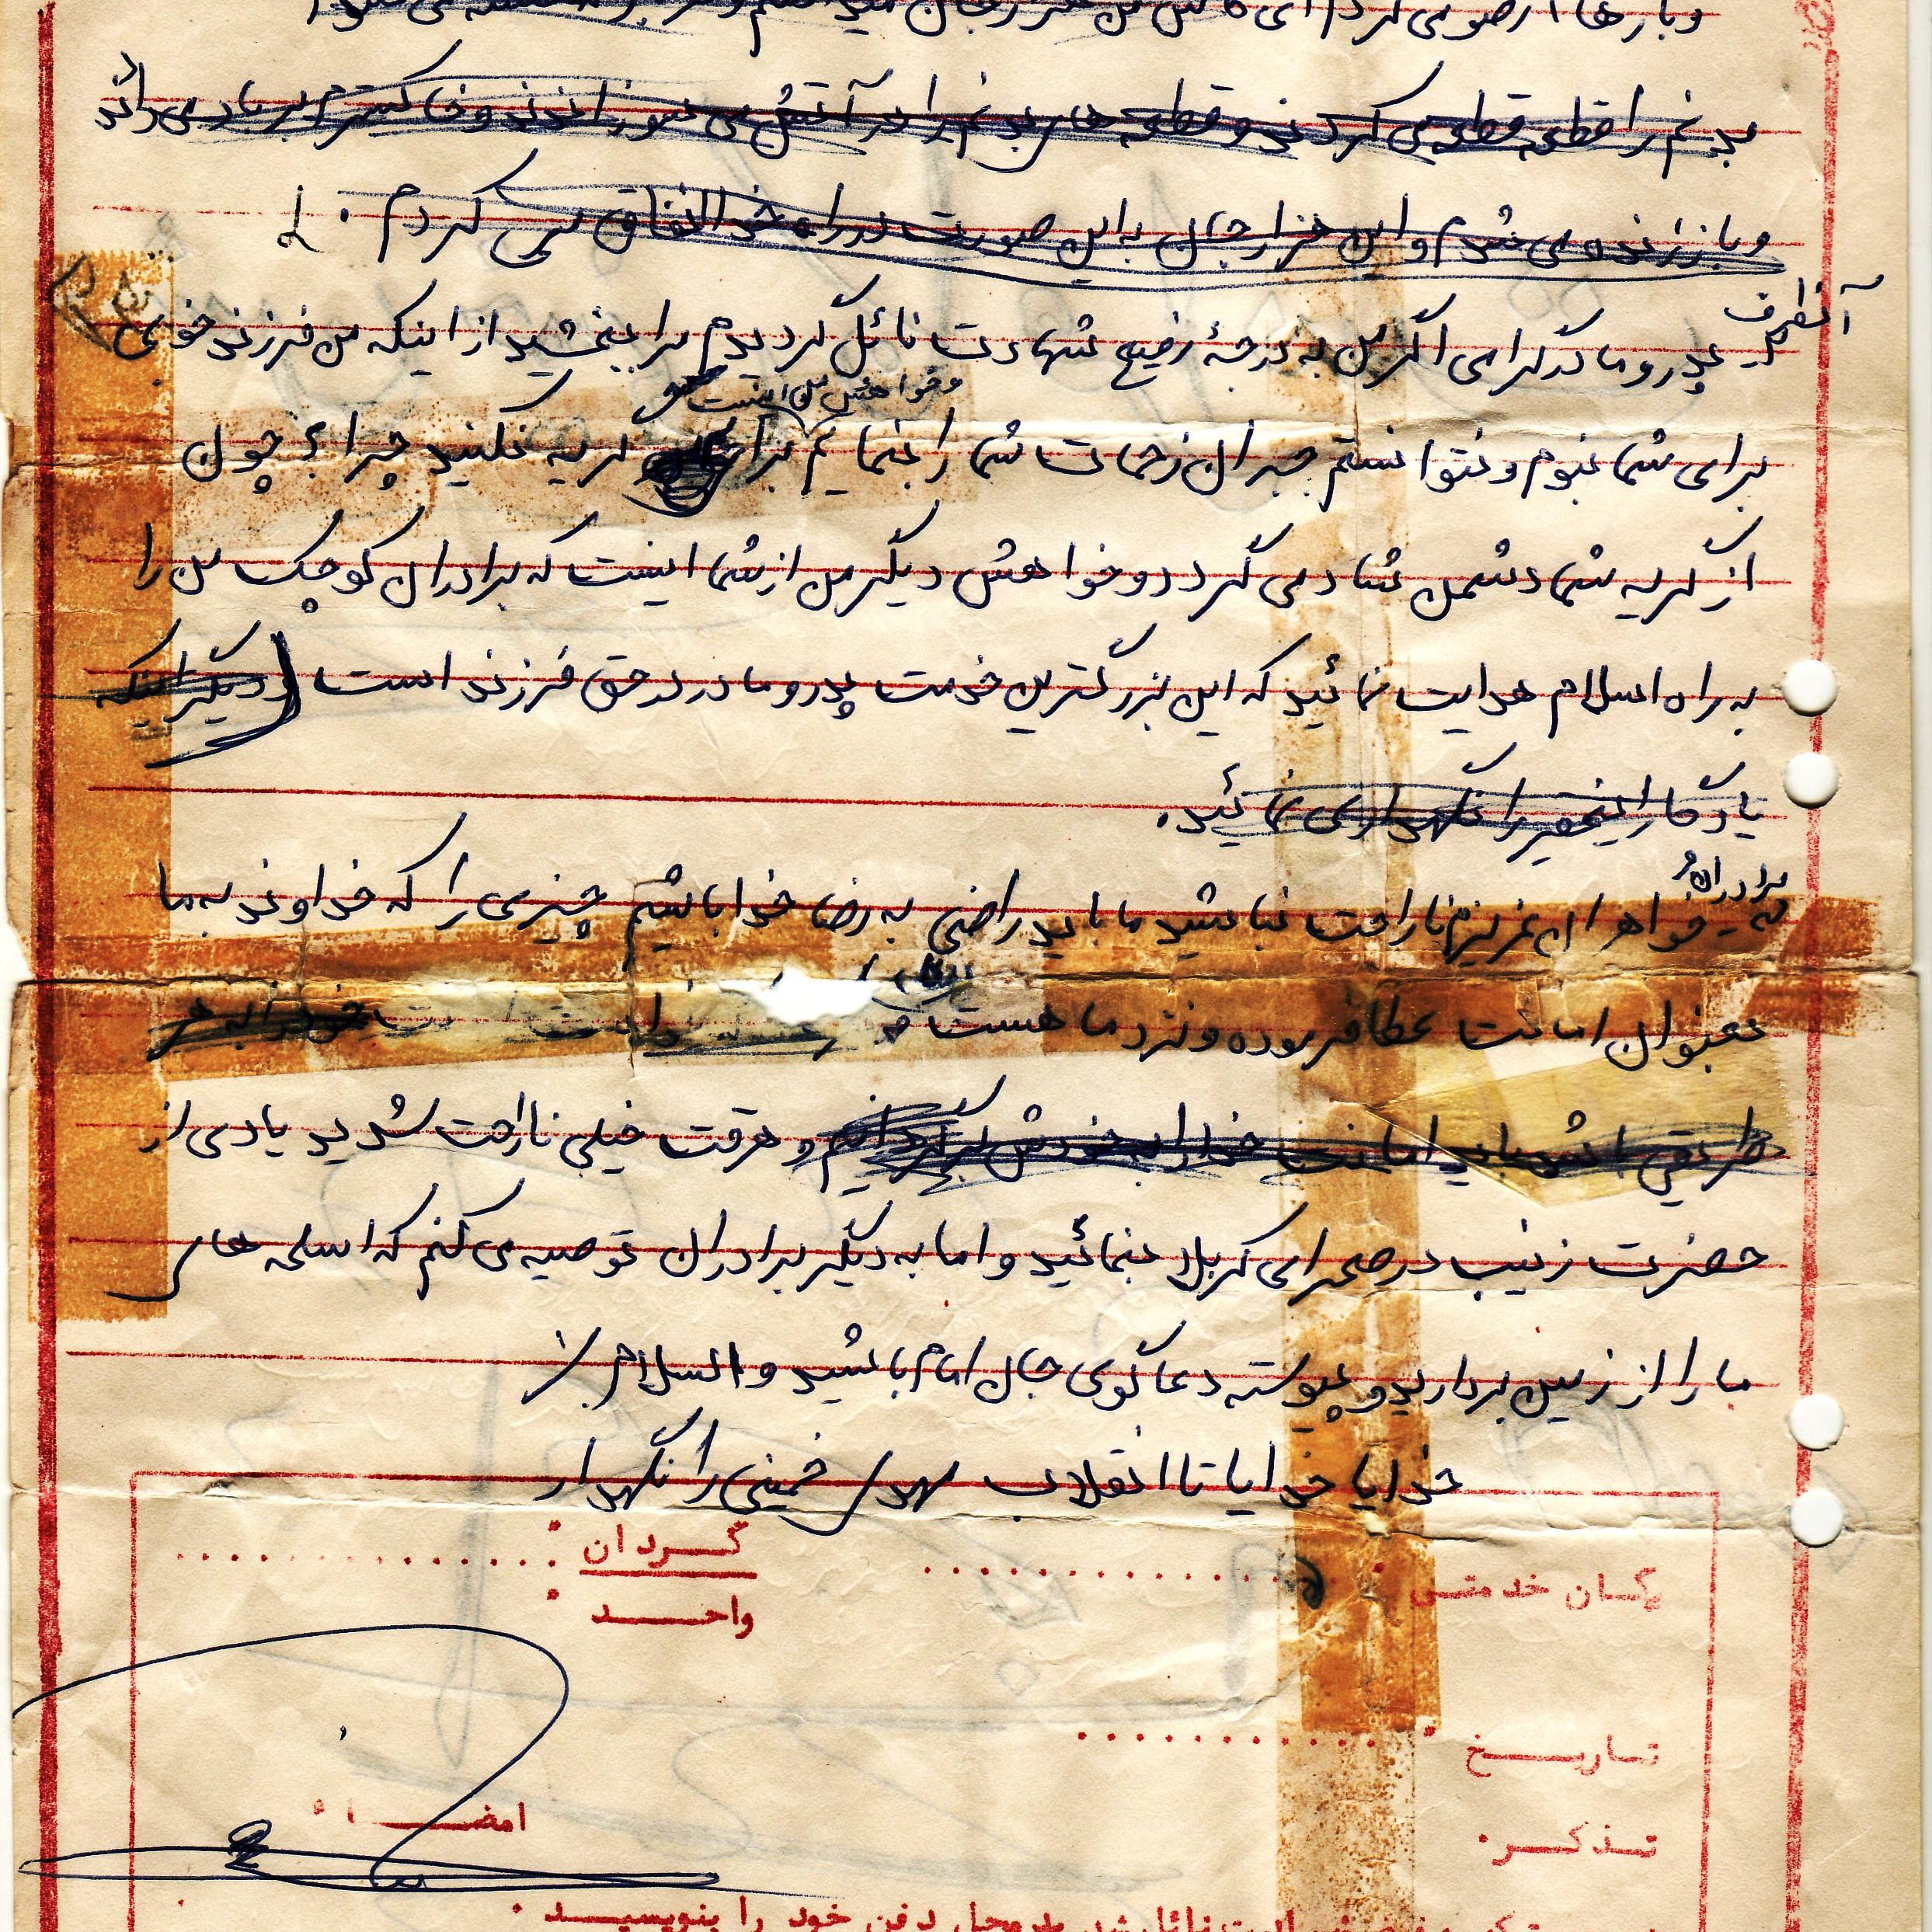 و بارها آرزو می کردم ای کاش من هزار جان
بدنم را قطعه قطعه می کردند و قطعه های بدنم را در آتش می سوزاندند و خاکسترم بر باد می دادند
و باز زنده می شدم و این هزار جان به این صورت در راه خدا انفاق می کردم .
آنطرف
پدر و مادر گرامی اگر من به درجهٔ رفیع شهادت نائل گردیدم مرا ببخشید از اینکه من فرزند خوبی
و خواهش من اینست
برای شما نبودم و نتوانستم جبران زحمات شما را بنمایم برایم گریه نکنید چرا؟ چون
از گریه شما دشمن شاد می گردد و خواهش دیگر من از شما اینست که برادران کوچک من را
به راه اسلام هدایت نمائید که این بزرگترین خدمت پدر و مادر در حق فرزند است (و دیگر اینکه
یادگار اینحقیر را نگهداری نمائید.
برادران و
خواهران عزیزم ناراحت نباشید ما باید راضی به رضا خدا باشیم چیزی را که خداوند به ما
بعنوان امانت عطا فرموده و نزد ما هست خود را به هر
طریقی باشد باید امانت خدا را به خودش برگردانیم و هروقت خیلی ناراحت شدید یادی از
حضرت زینب در صحرای کربلا بنمائید و اما به دیگر برادران توصیه می کنم که اسلحه های
ما را از زمین بردارید و پیوسته دعاگوی جان امام باشید والسلام
خدایا خدایا تا انقلاب مهدی خمینی را نگهدار
یگان خدمتی : گردان :
واحد :
تاریخ :
امضاء
تذکر :
خود را بنویسید .